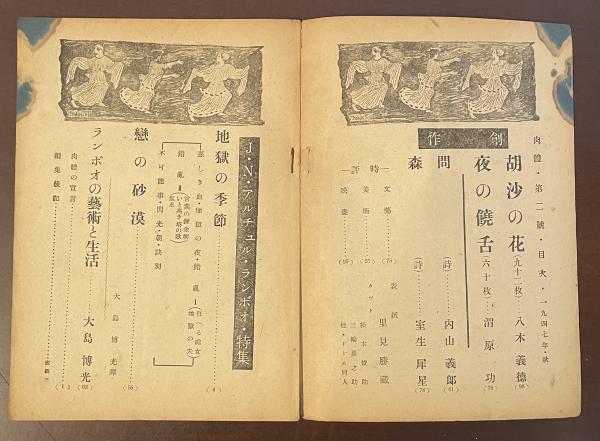 肉體・第二號・目次・一九四七年・秋
創作
胡沙の花(九十二枚)…八木義德(98)
夜の饒舌(六十枚)…渭原功(76)
問(詩)…内山義郎(61)
森(詩)…室生犀星(74)
時評
文藝…(73)
美術…(57)
映畫…
表紙 里見勝蔵
カット
J・N・アルチュル・ランボオ・特集
地獄の季節…(4)
惡しき血・地獄の夜・錯亂Ⅰ(狂へる處女 地獄の夫)
錯亂Ⅱ
不可能事・閃光・朝・訣別
戀の砂漠…(56)
大島博光譯
ランボオの藝術と生活 大島博光(62)
肉體の宣言…(1)
編集後記…